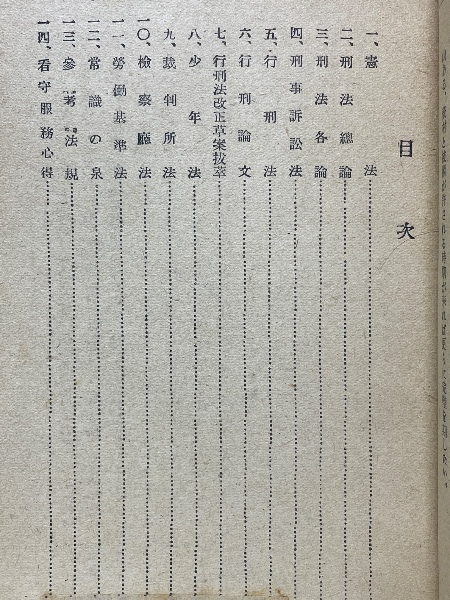 目次
一、憲法
二、刑法總論
三、刑法各論
四、刑事訴訟法
五、行刑法
六、行刑論文
七、行刑法改正草案抜萃
八、少年法
九、裁判所法
一〇、檢察廳法
一一、勞働基準法
一二、常識の泉
一三、參考法規
一四、看守服務心得